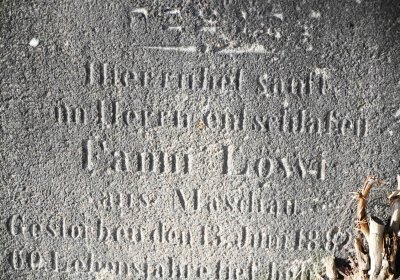 Hier ruhet sanft
im Herrn entschlafen
Fanni Löwi
aus Maschau
Gestorben den 13. Juni 188
60. Lebensjahre